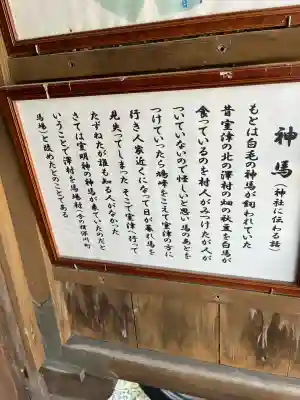 神馬（神社に伝わる話）
もとは白毛の神馬が飼われていた
昔室津の北の澤村の畑の秋豆を白馬が
食っているのを村人がみつけたが人が
ついていないので怪しいと思い馬のあとを
つけていったら鳩峰をこえて室津の方に
行き人家近くになって日が暮れ馬を
見失ってしまったそこで室津へ行って
たずねたが誰も知る人がなかった
さては室明神の神馬が来ていたのだと
いうことで澤村を馬場村（今の揖保川町
馬場）と改めたとのことである